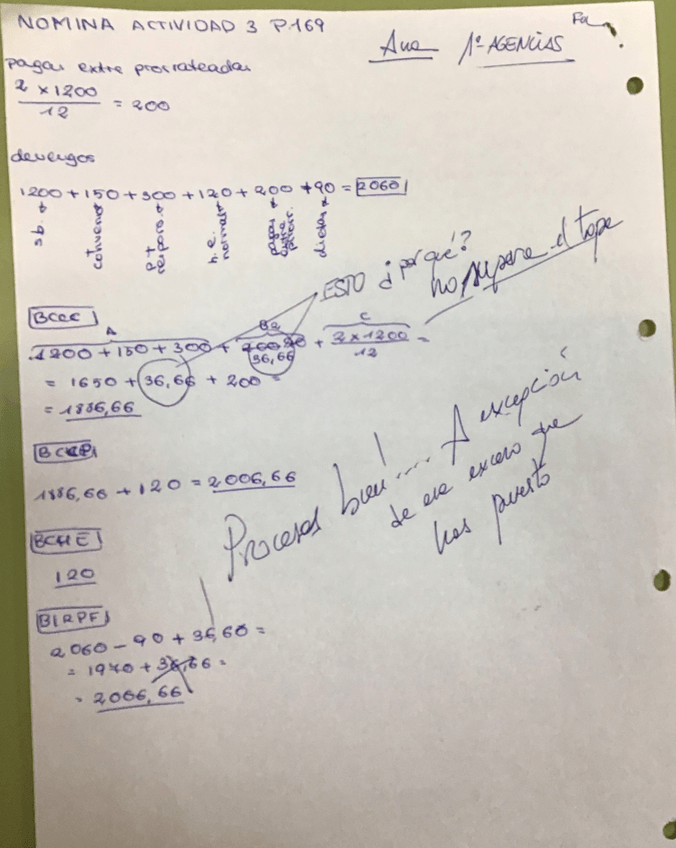 NOMINA ACTIVIDAD 3 P.169
Ana 1º AGENCIAS
pagas extra prorrateadas
2 x 1200
12
= 200
devengos
1200 + 150 + 300 + 120 + 200 + 90 = 2060
s.b.
+ convenio
h.e. normal
pagas extra prorr.
dietas
ESTO ¿por qué?
no supera el tope
BCCC
A
B2
C
1200 + 150 + 300 + 36,66 + 2 x 1200 =
12
= 1650 + 36,66 + 200 =
= 1886,66
BCCP
1886,66 + 120 = 2006,66
Procesos bien!.... A excepción
de ese exceso que
has puesto
BCHE
120
BIRPF
2060 - 90 + 36,66 =
= 1970 + 36,66 =
= 2006,66